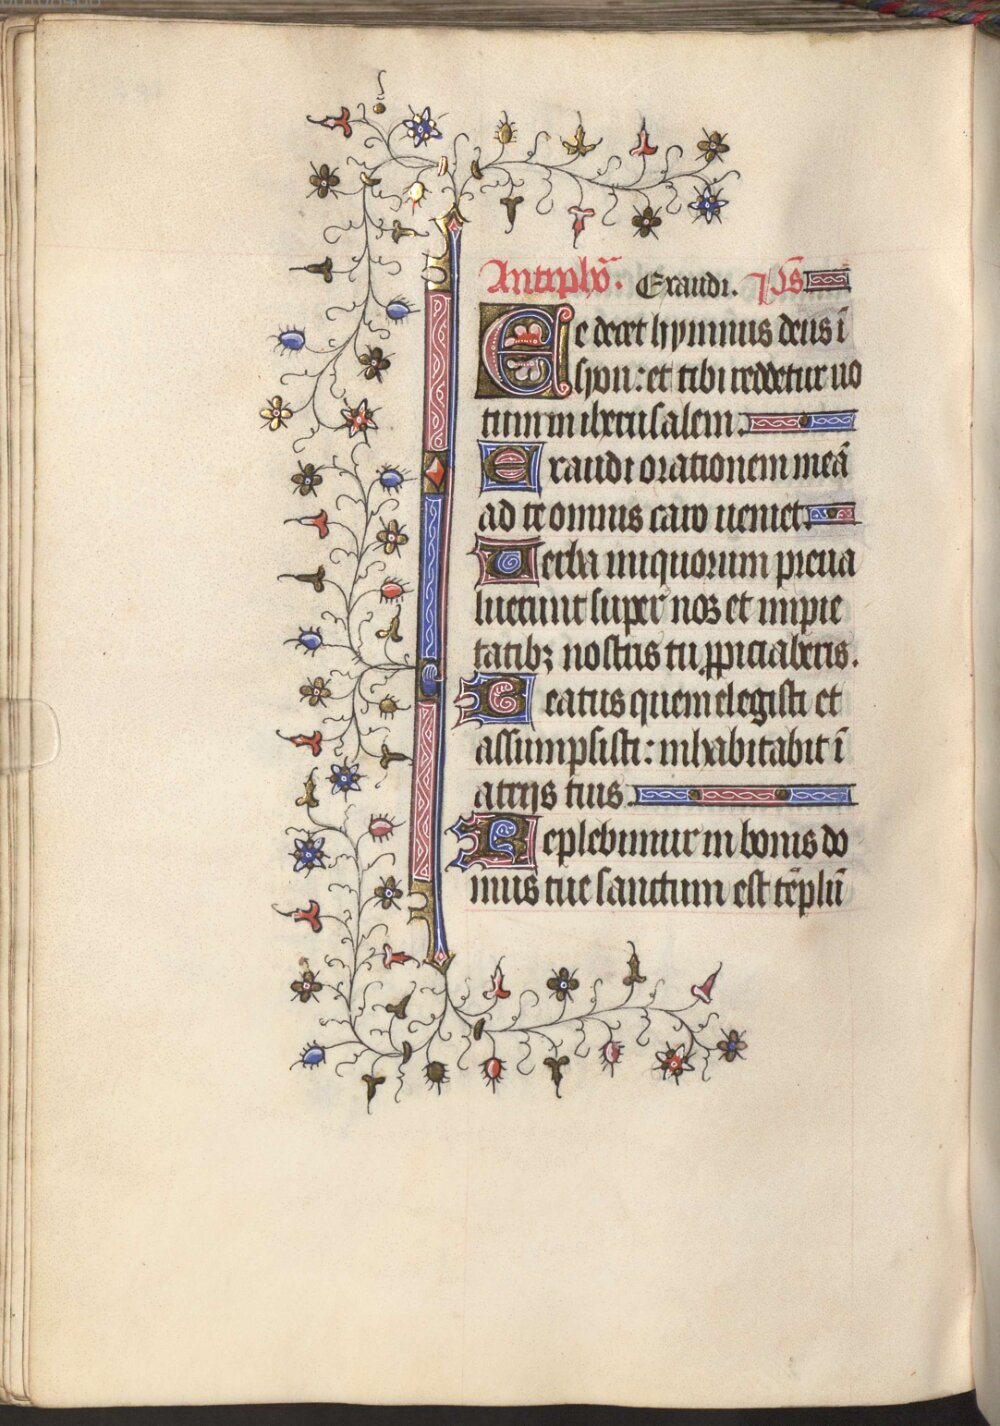 Antiphō. Exaudi. p̄s
Te decet hymnus deus ī
syon: et tibi reddetur uo
tum in iherusalem.
Exaudi orationem meā
ad te omnis caro ueniet.
Uerba iniquorum preua
luerunt super nos et impie
tatibꝫ nostris tu ꝓpiciaberis.
Beatus quem elegisti et
assumpsisti: inhabitabit ī
atrijs tuis.
Replebimur in bonis do
mus tue sanctum est tēplū